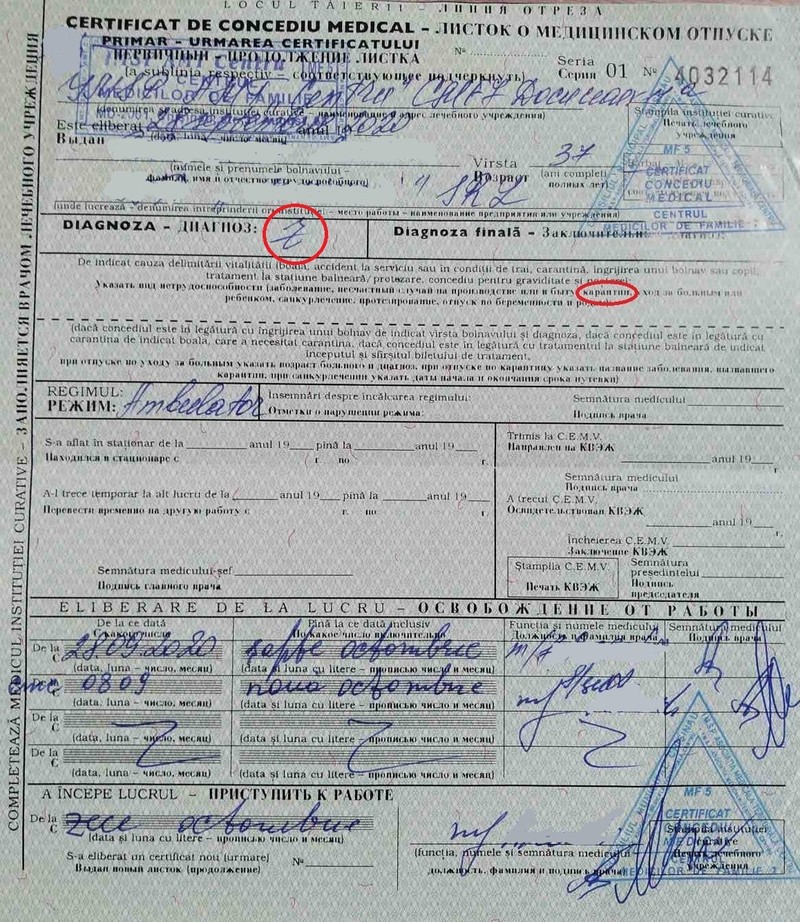 LOCUL TĂIERII - ЛИНИЯ ОТРЕЗА
CERTIFICAT DE CONCEDIU MEDICAL – ЛИСТОК О МЕДИЦИНСКОМ ОТПУСКЕ
PRIMAR - URMAREA CERTIFICATULUI
ПЕРВИЧНЫЙ - ПРОДОЛЖЕНИЕ ЛИСТКА
(a sublinia respectiv – соответствующее подчеркнуть)
№
Seria
Серия 01 № 4032114
(denumirea şi adresa instituţiei curative – наименование и адрес лечебного учреждения)
Ştampila instituţiei curative
Печать лечебного учреждения
Este eliberat
Выдан
2020
(data, luna – число, месяц)
(numele şi prenumele bolnavului – фамилия, имя и отчество нетрудоспособного)
Vîrsta 37 (ani compleţi
Возраст полных лет)
" SRL
(unde lucrează – denumirea întreprinderii or. institute. – место работы – наименование предприятия или учреждения)
MF 5
CERTIFICAT
CONCEDIU
MEDICAL
CENTRUL
MEDICILOR DE FAMILIE
DIAGNOZA – ДИАГНОЗ:
Diagnoza finală – Заключительн.
De indicat cauza delimitării vitalităţii (boala, accident la serviciu sau în condiţii de trai, carantină, îngrijirea unui bolnav sau copil,
tratament la staţiune balneară/ protezare, concediu pentru graviditate şi naştere)
Указать вид нетрудоспособности (заболевание, несчастный случай на производстве или в быту, карантин, уход за больным или
ребенком, санкурлечение, протезирование, отпуск по беременности и родам)
(dacă concediul este în legătură cu îngrijirea unui bolnav de indicat vîrsta bolnavului şi diagnoza, dacă concediul este în legătură cu
carantina de indicat boala, care a necesitat carantina, dacă concediul este în legătură cu tratamentul la staţiune balneară de indicat
începutul şi sfîrşitul biletului de tratament,
при отпуске по уходу за больным указать возраст больного и диагноз, при отпуске по карантину указать название заболевания, вызвавшего
карантин, при санкурлечении указать даты начала и окончания срока путевки)
REGIMUL:
РЕЖИМ: Ambulator
Însemnări despre încălcarea regimului:
Отметки о нарушении режима:
Semnătura medicului
Подпись врача
S-a aflat în staţionar de la anul 19 pînă la anul 19
Находился в стационаре с г. по г.
A-l trece temporar la alt lucru de la anul 19 pînă la anul 19
Перевести временно на другую работу с г. по г.
Semnătura medicului-şef
Подпись главного врача
Trimis la C.E.M.V.
Направлен на КВЭЖ
anul 19 г.
Semnătura medicului
Подпись врача
A trecut C.E.M.V.
Освидетельствован КВЭЖ
anul 19 г.
Încheierea C.E.M.V.
Заключение КВЭЖ
Ştampila C.E.M.V.
Печать КВЭЖ
Semnătura preşedintelui
Подпись председателя
ELIBERARE DE LA LUCRU – ОСВОБОЖДЕНИЕ ОТ РАБОТЫ
De la ce dată
С какого числа
Pînă la ce dată inclusiv
По какое число включительно
Funcţia şi numele medicului
Должность и фамилия врача
Semnătura medicului
Подпись врача
De la
С 28 09.2020 șapte octombrie m/f
(data, luna – число, месяц) (data şi luna cu litere – прописью число и месяц)
De la
С 0809 noua octombrie
(data, luna – число, месяц) (data şi luna cu litere – прописью число и месяц)
De la
С
(data, luna – число, месяц) (data şi luna cu litere – прописью число и месяц)
De la
С
(data, luna – число, месяц) (data şi luna cu litere – прописью число и месяц)
A ÎNCEPE LUCRUL – ПРИСТУПИТЬ К РАБОТЕ
De la
С zece octombrie
(data şi luna cu litere – прописью число и месяц)
S-a eliberat un certificat nou (urmare)
Выдан новый листок (продолжение) №
(funcţia, numele şi semnătura medicului –
должность, фамилия и подпись врача)
Ştampila instituţiei curative
Печать лечебного учреждения
MF 5
CERTIFICAT
CONCEDIU
MEDICAL
CENTRUL
MEDICILOR DE FAMILIE
COMPLETEAZĂ MEDICUL INSTITUŢIEI CURATIVE - ЗАПОЛНЯЕТСЯ ВРАЧОМ ЛЕЧЕБНОГО УЧРЕЖДЕНИЯ